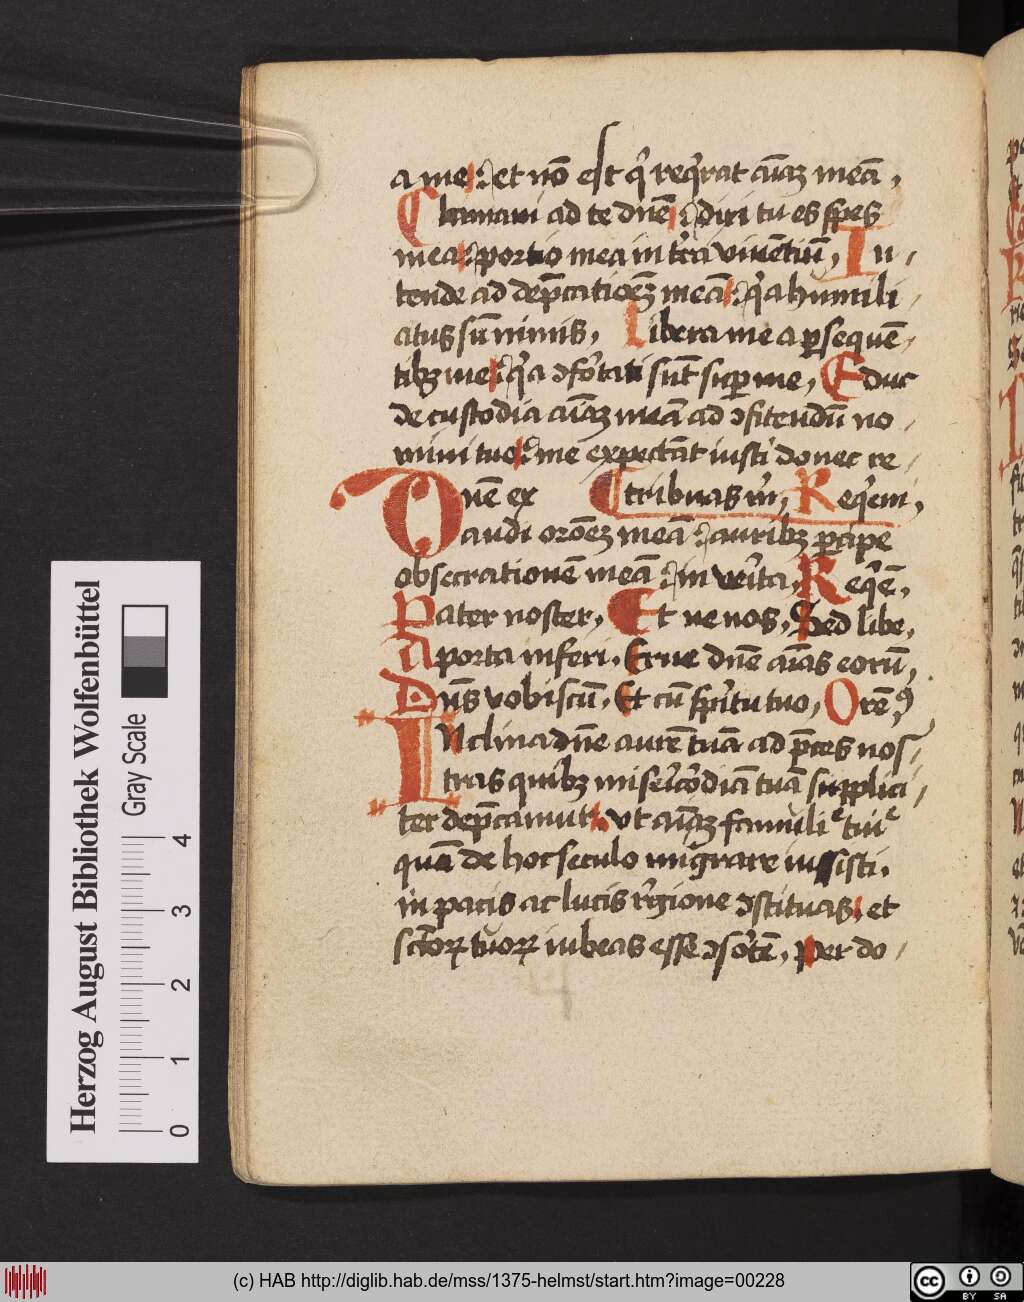 a me : et nō est qͥ reqͥrat aīaꝫ meā ,
Clamaui ad te dn̄e : dixi tu es spes
mea : portio mea in tr̄a viuētiū , In -
tende ad dep̄catōeꝫ meā : qͥa humili -
atus sū nimis , Libera me a ꝑsequē -
tibꝫ me : qͥa ↄfortati sūt suꝑ me , Educ
de custodia aīaꝫ meā ad ↄfitendū no -
mini tuo : me expectāt iusti donec re -
tribuas m̄ , Reqͥem ,
Dn̄e ex
audi orōeꝫ meā : auribꝫ ꝑcipe
obsecrationē meā : in veͥta , Reqͥē ,
Pater noster , Et ne nos , Sed libe ,
A porta inferi , Erue dn̄e aīas eorū ,
Dn̄s vobiscū , Et cū spͥitu tuo , Orēꝰ ,
Inclina dn̄e aurē tuā ad p̄ces nos -
tras quibꝫ miſericordiā tuā supplici -
ter dep̄camur , vt aīaꝫ famuli tui
quā de hoc seculo migrare iussisti ,
in pacis ac lucis regione ↄstituas , et
sctōꝝ tuoꝝ iubeas esse ↄsortē , Per do -
Herzog August Bibliothek Wolfenbüttel
Gray Scale
0 1 2 3 4
(c) HAB http://diglib.hab.de/mss/1375-helmst/start.htm?image=00228
cc BY SA